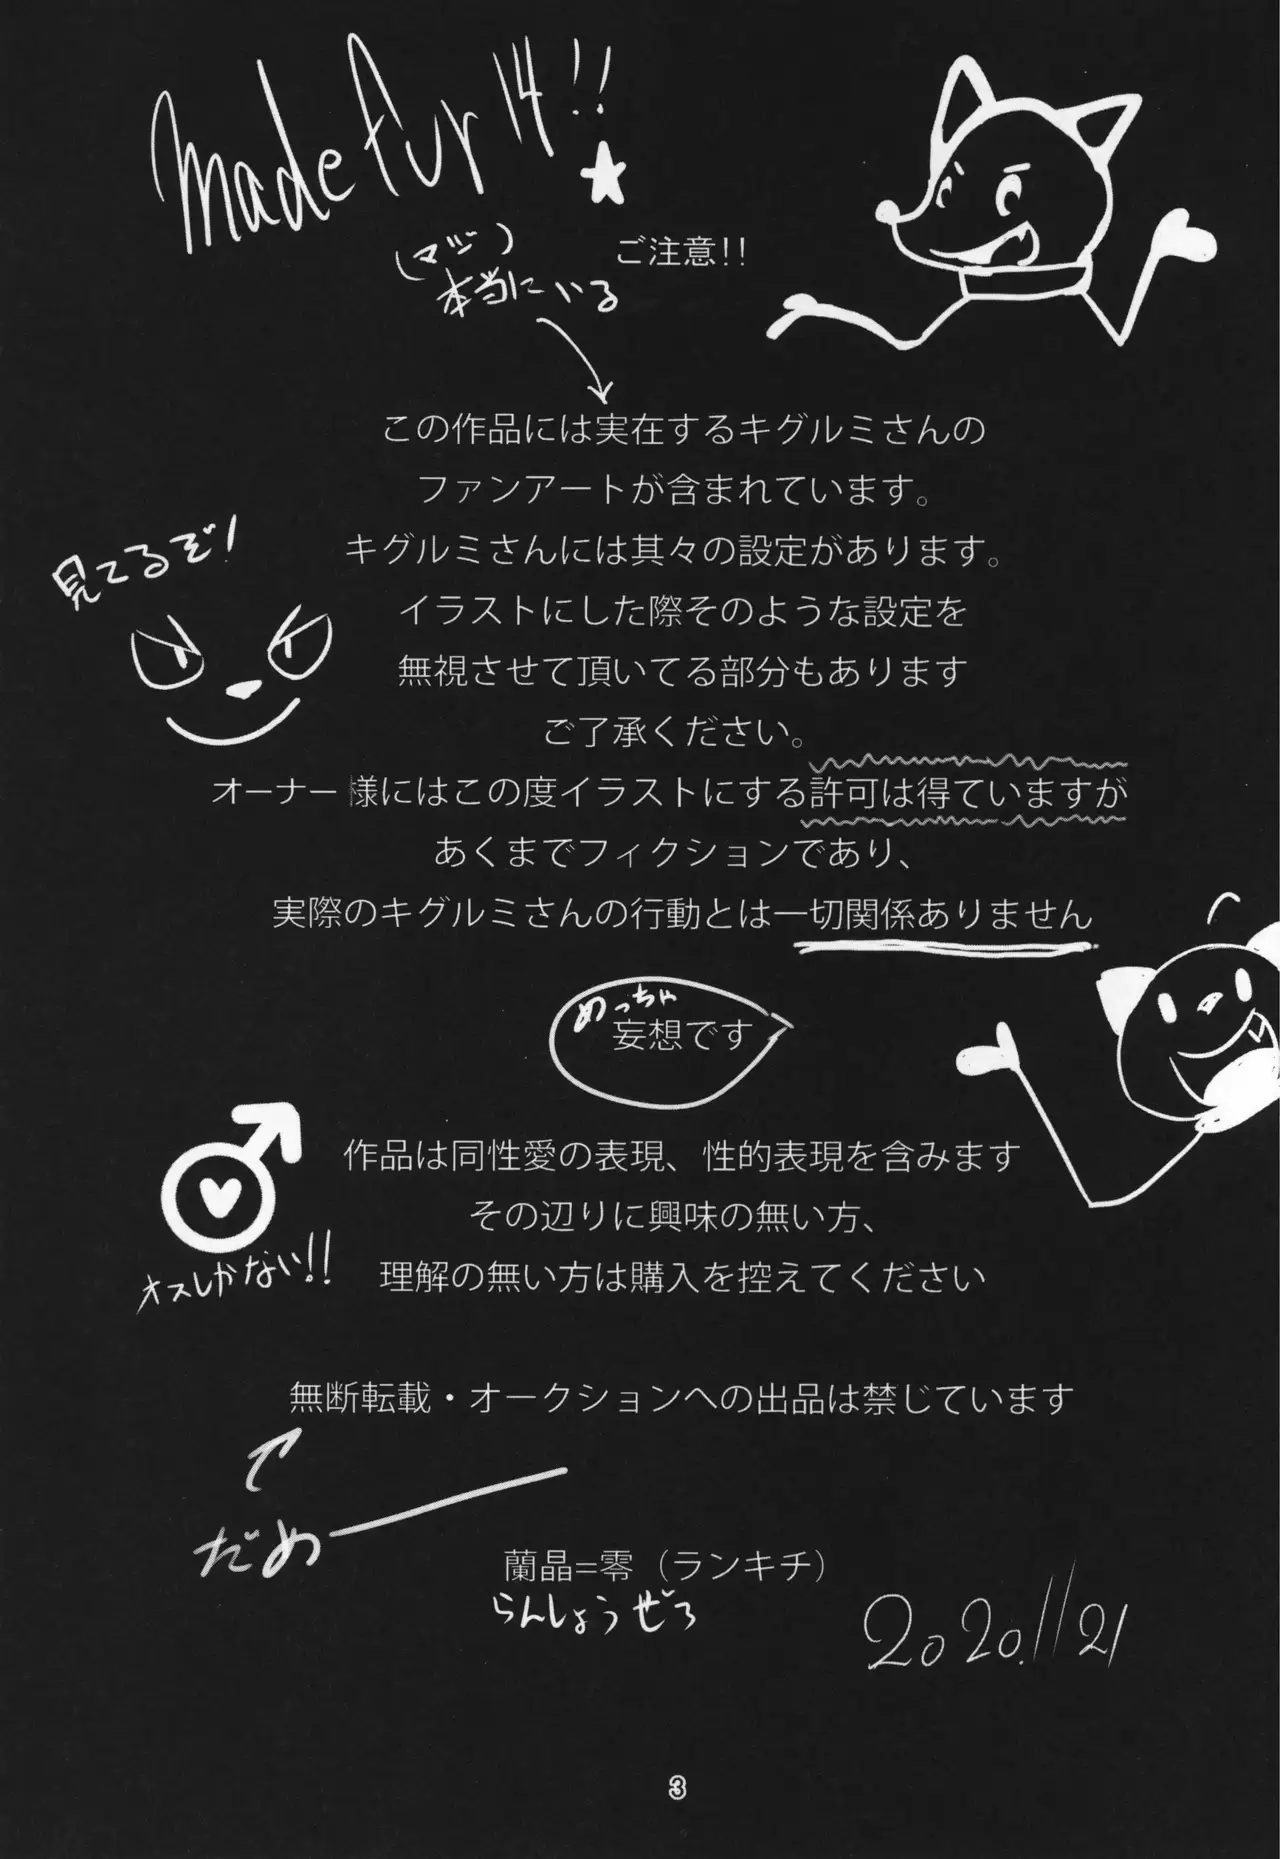 made fur 14!!
ご注意!!
(マジ)
本当にいる
この作品には実在するキグルミさんの
ファンアートが含まれています。
キグルミさんには其々の設定があります。
見てるぞ!
イラストにした際そのような設定を
無視させて頂いてる部分もあります
ご了承ください。
オーナー様にはこの度イラストにする許可は得ていますが
あくまでフィクションであり、
実際のキグルミさんの行動とは一切関係ありません
めっちゃ
妄想です
作品は同性愛の表現、性的表現を含みます
その辺りに興味の無い方、
理解の無い方は購入を控えてください
オスしかない!!
無断転載・オークションへの出品は禁じています
だめー
蘭晶=零（ランキチ）
らんしょうぜろ
2020.11/21
3